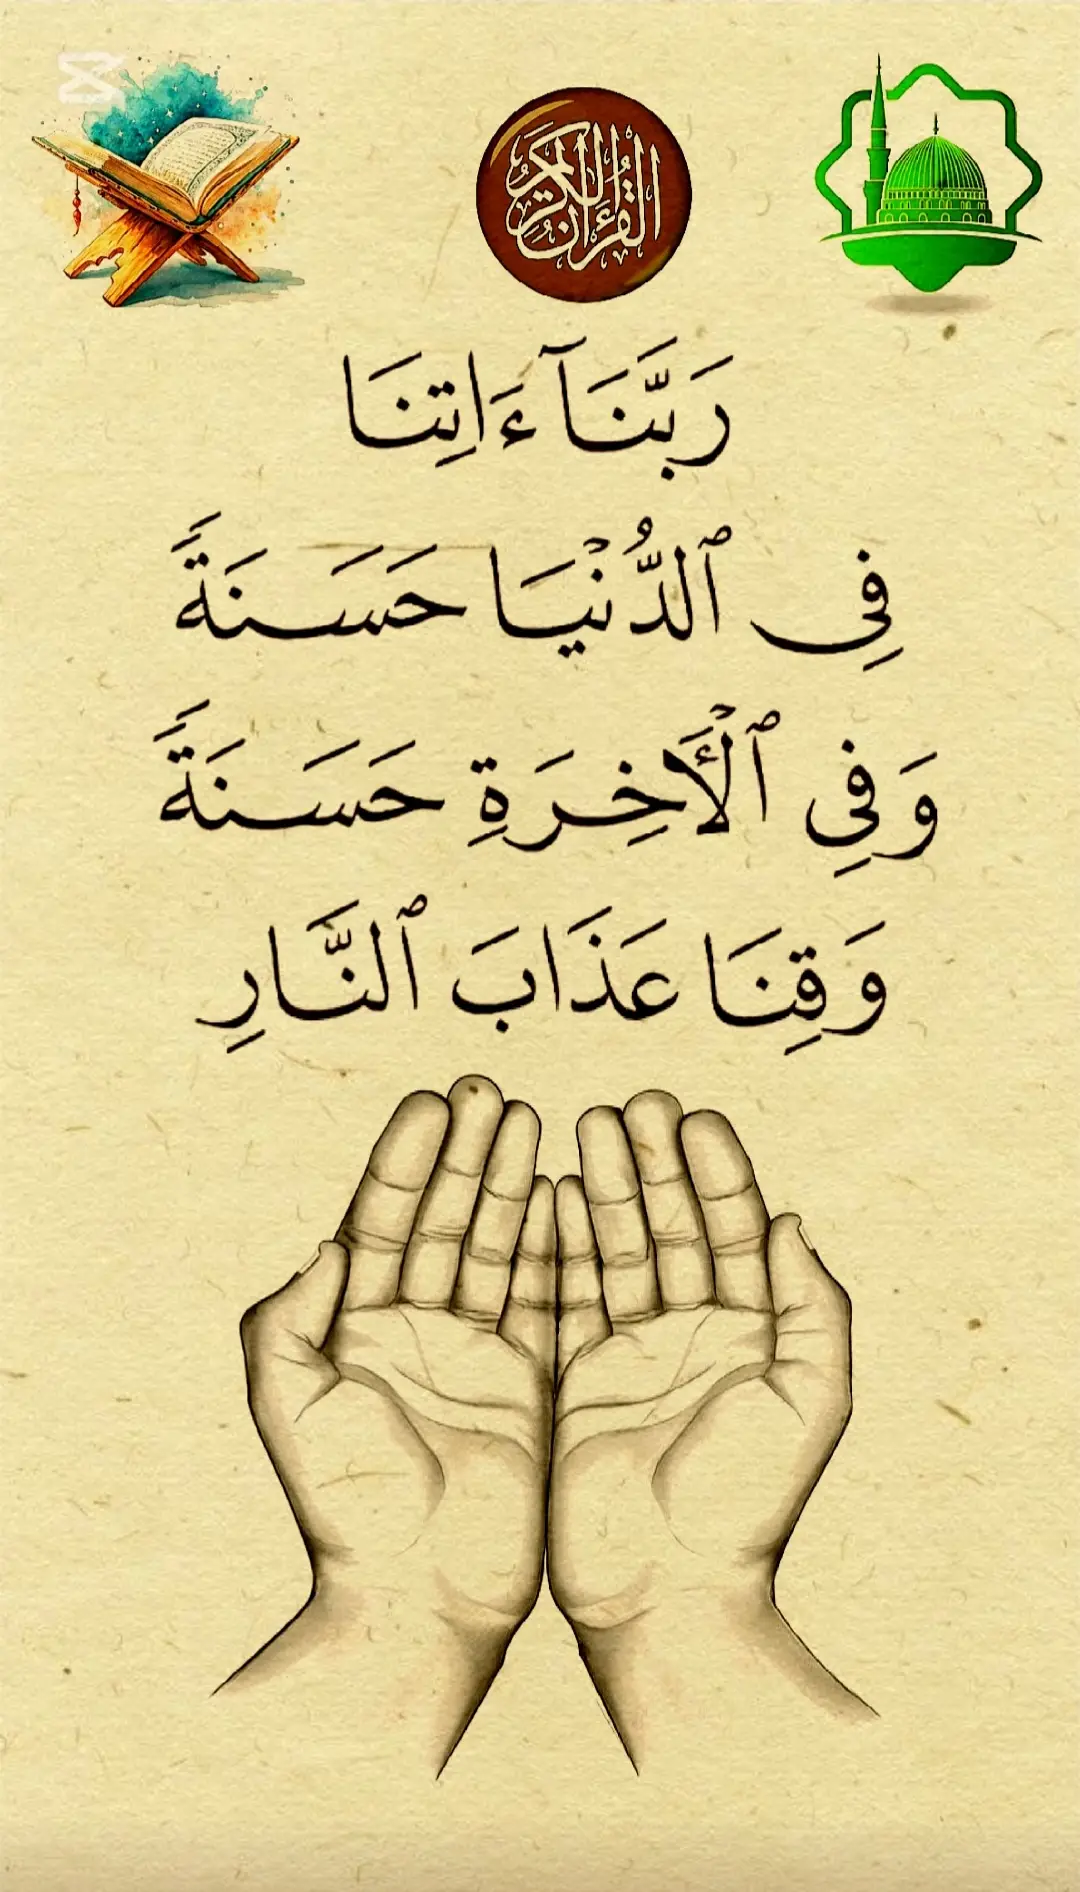 القرآن الكريم
رَبَّنَآ ءَاتِنَا
فِى ٱلدُّنْيَا حَسَنَةً
وَفِى ٱلْأَخِرَةِ حَسَنَةً
وَقِنَا عَذَابَ ٱلنَّارِ